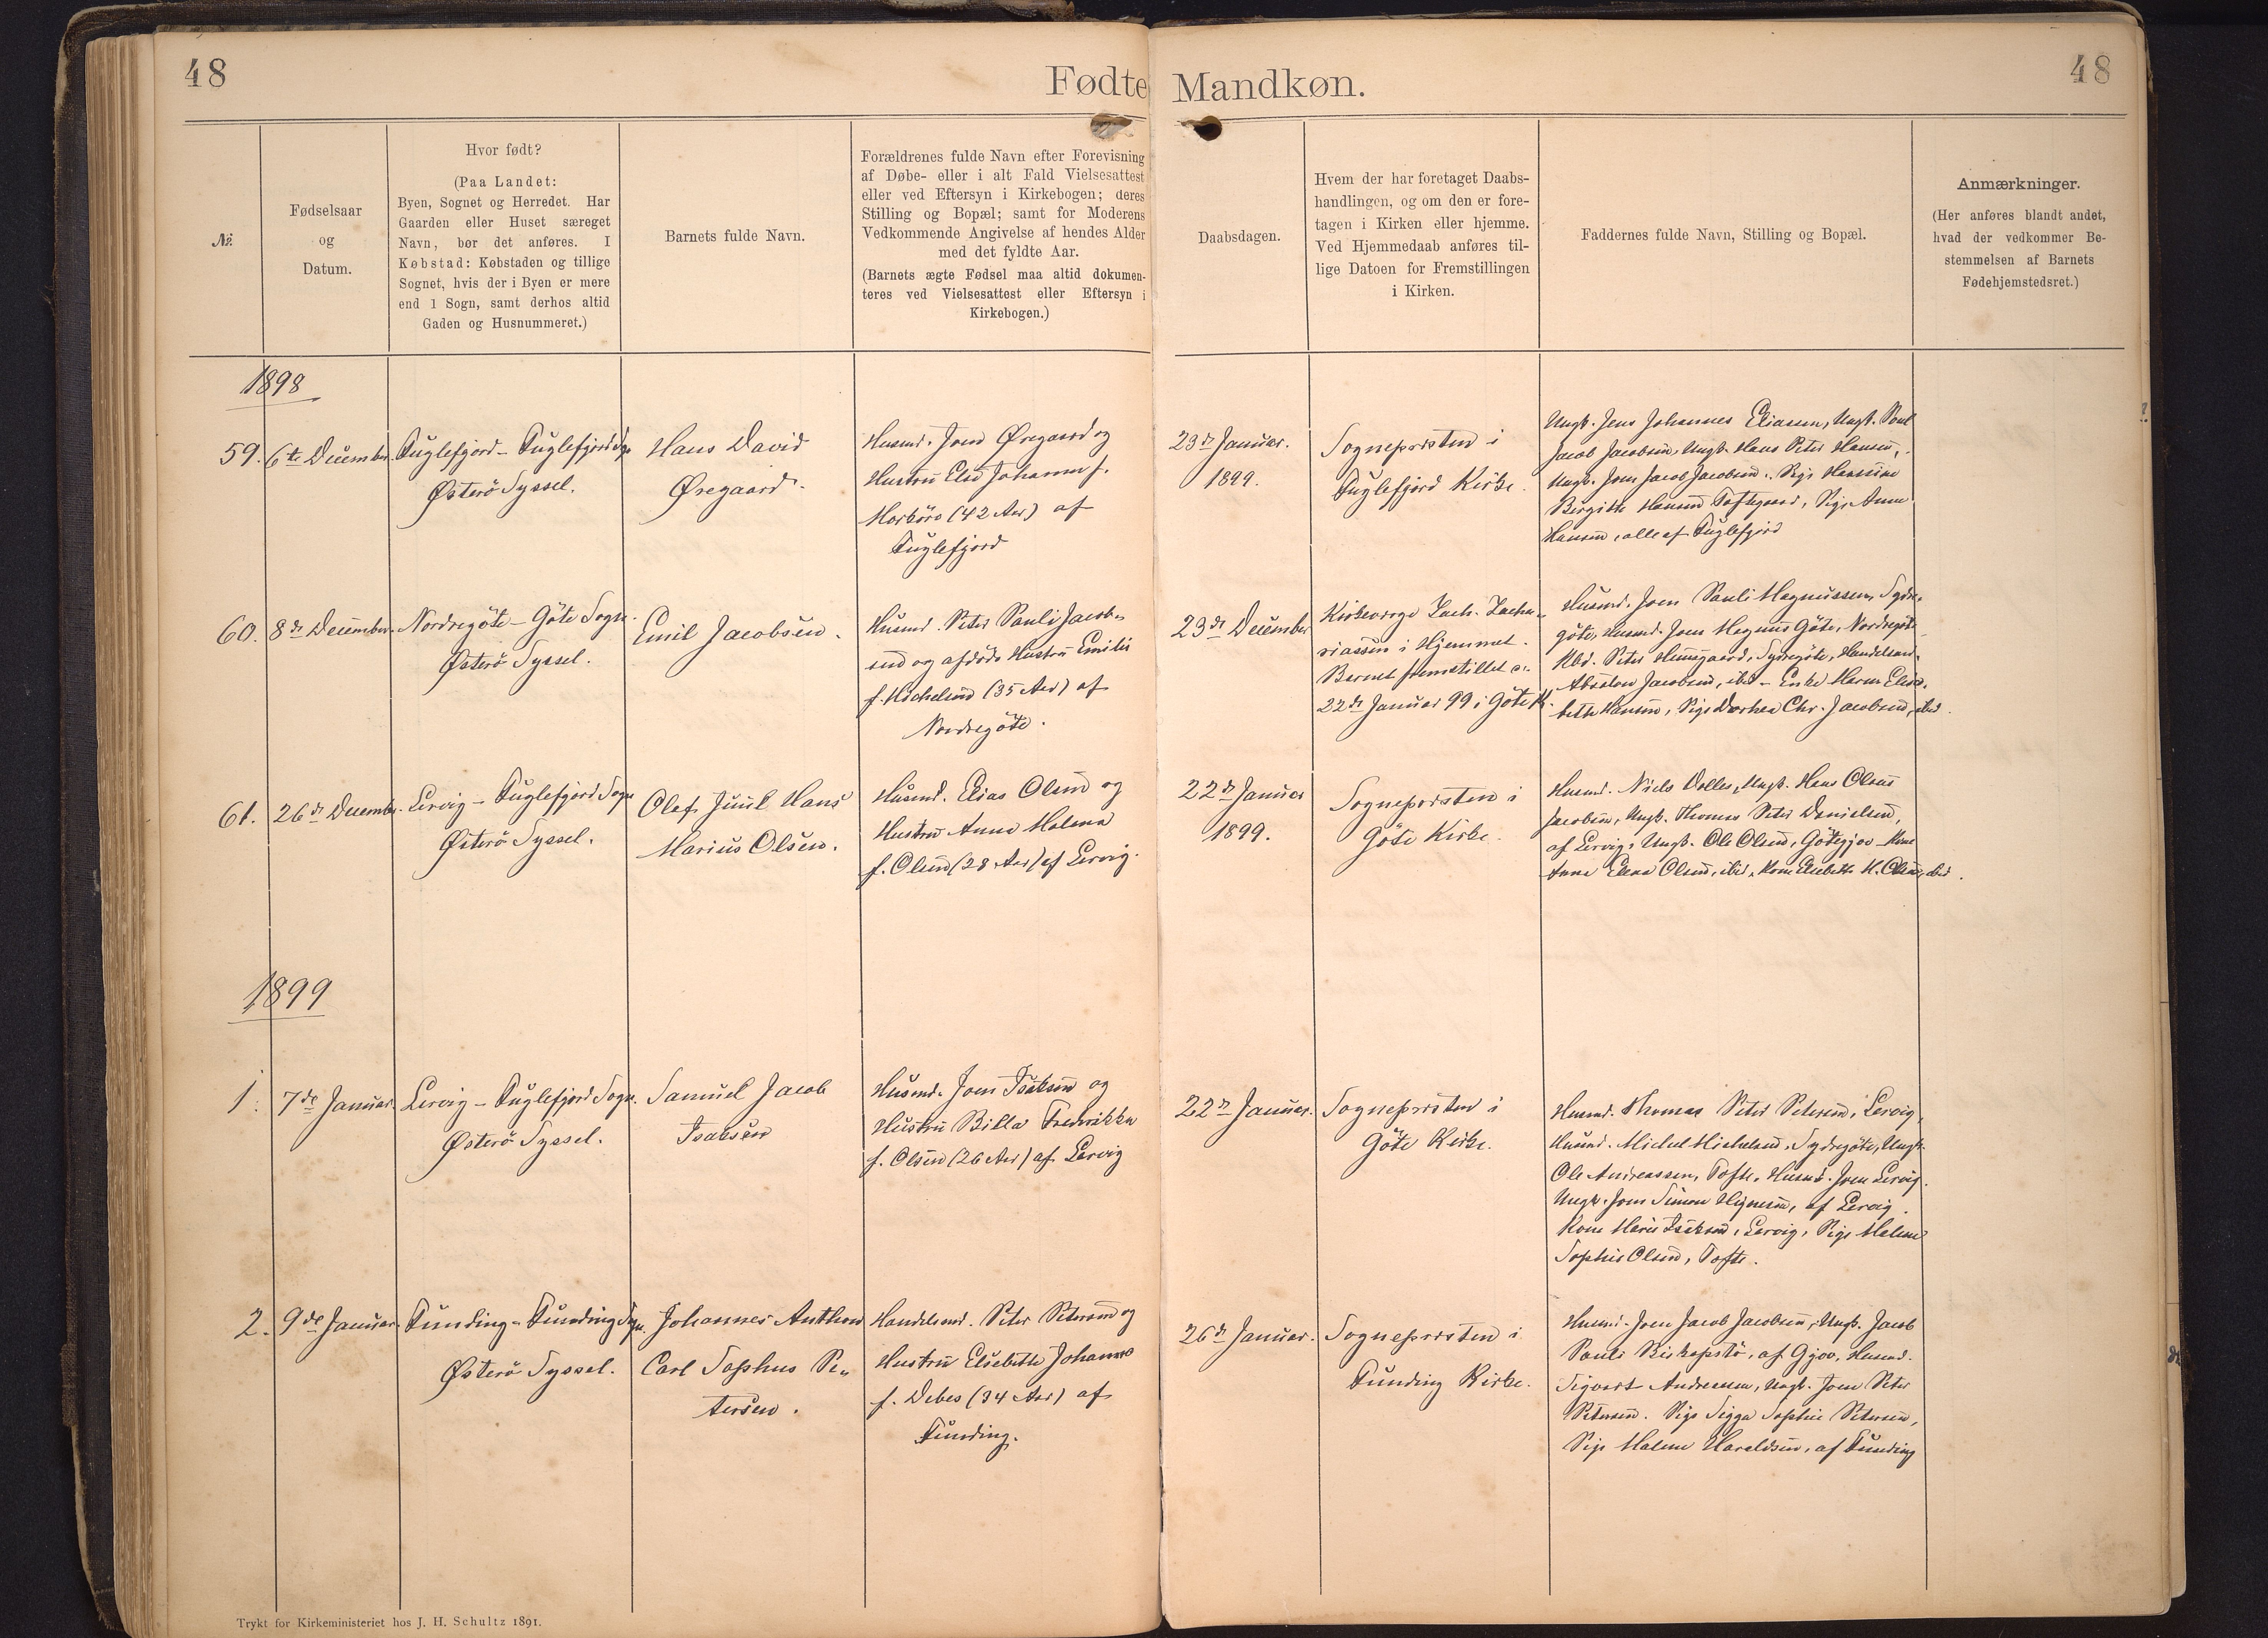 48
Fødte
Mandkøn.
48
№
Fødselsaar
og
Datum.
Hvor født?
(Paa Landet:
Byen, Sognet og Herredet. Har
Gaarden eller Huset særeget
Navn, bør det anføres. I
Købstad: Købstaden og tillige
Sognet, hvis der i Byen er mere
end 1 Sogn, samt derhos altid
Gaden og Husnummeret.)
Barnets fulde Navn.
Forældrenes fulde Navn efter Forevisning
af Døbe- eller i alt Fald Vielsesattest
eller ved Eftersyn i Kirkebogen; deres
Stilling og Bopæl; samt for Moderens
Vedkommende Angivelse af hendes Alder
med det fyldte Aar.
(Barnets ægte Fødsel maa altid dokumen-
teres ved Vielsesattest eller Eftersyn i
Kirkebogen.)
Daabsdagen.
Hvem der har foretaget Daabs-
handlingen, og om den er fore-
tagen i Kirken eller hjemme.
Ved Hjemmedaab anføres til-
lige Datoen for Fremstillingen
i Kirken.
Faddernes fulde Navn, Stilling og Bopæl.
Anmærkninger.
(Her anføres blandt andet,
hvad der vedkommer Be-
stemmelsen af Barnets
Fødehjemstedsret.)
1898
59.
6te December.
Fuglefjord - Fuglefjord Sogn
Østerö Syssel.
Hans David
Øregaard.
Husmd. Joen Øregaard og
Hustru Else Johanne f.
Morköre (42 Aar) af
Fuglefjord
23de Januar.
1899.
Sognepræsten i
Fuglefjord Kirke.
Ungk. Jens Johannes Eliasen, Ungk. Poul
Jacob Jacobsen, Ungk. Hans Peter Hansen,
Ungk. Joen Jacob Jacobsen. Pige Hansine
Birgitte Hansen Toftegaard, Pige Anna
Hansen, alle af Fuglefjord
60.
8de December.
Nordregöte - Göte Sogn.
Østerö Syssel.
Emil Jacobsen.
Husmd. Peter Pauli Jacob-
sen og afdöde Hustru Emilie
f. Michelsen (35 Aar) af
Nordregöte.
23de December
Kirkeværge Zach. Zacha-
riassen i Hjemmet.
Barnet fremstillet
22de Januar 99 i Göte K.
Husmd. Joen Pauli Magnussen, Sydre-
göte, Husmd. Joen Magnus Göte, Nordregöte
Kbd. Peter Sydregöte, Handelsmd.
Absalon Jacobsen, ibid - Enke Maren Elsa-
beth Hansen, Pige Dorthea Chr. Jacobsen, ibid.
61.
26de December.
Lervig - Fuglefjord Sogn
Østerö Syssel.
Olef Juul Hans
Marius Olsen.
Husmd. Elias Olsen og
Hustru Anna Malena
f. Olsen (28 Aar) af Lervig.
22de Januar
1899.
Sognepræsten i
Göte Kirke.
Husmd. Niels Ungk. Hans Olaus
Jacobsen, Ungk. Thomas Peter Danielsen,
af Lervig, Ungk. Ole Olsen, Götegjov - Kone
Anna Elena Olsen, ibid, Kone Elsebeth M. Olsen, ibid.
1899
1.
7de Januar.
Lervig - Fuglefjord Sogn.
Østerö Syssel.
Samuel Jacob
Isaksen
Husmd. Joen Isaksen og
Hustru Billa Frederikka
f. Olsen (26 Aar) af Lervig
22de Januar.
Sognepræsten i
Göte Kirke.
Husmd. Thomas Peter Petersen, Lervig,
Husmd. Michel Michelsen, Sydregöte, Ungk.
Ole Andreassen, Tofte, Husmd. Joen Lervig.
Ungk. Joen Simon Hejnesen, af Lervig.
Kone Marie Isaksen, Lervig, Pige Malene
Sophie Olsen, Tofte.
2.
9de Januar.
Funding - Funding Sogn.
Østerö Syssel.
Johannes Anthon
Carl Sophus Pe-
tersen.
Handelsmd. Peter Petersen og
Hustru Elsebeth Johanne
f. Debes (34 Aar) af
Funding.
26de Januar.
Sognepræsten i
Funding Kirke.
Husmd. Joen Jacob Jacobsen, Ungk. Jacob
Pauli Biskopstö, af Gjov, Husmd.
Sigvart Andreasen, Ungk. Joen Peter
Petersen. Pige Sigga Sophie Petersen,
Pige Malene Haraldsen, af Funding
Trykt for Kirkeministeriet hos J. H. Schultz 1891.